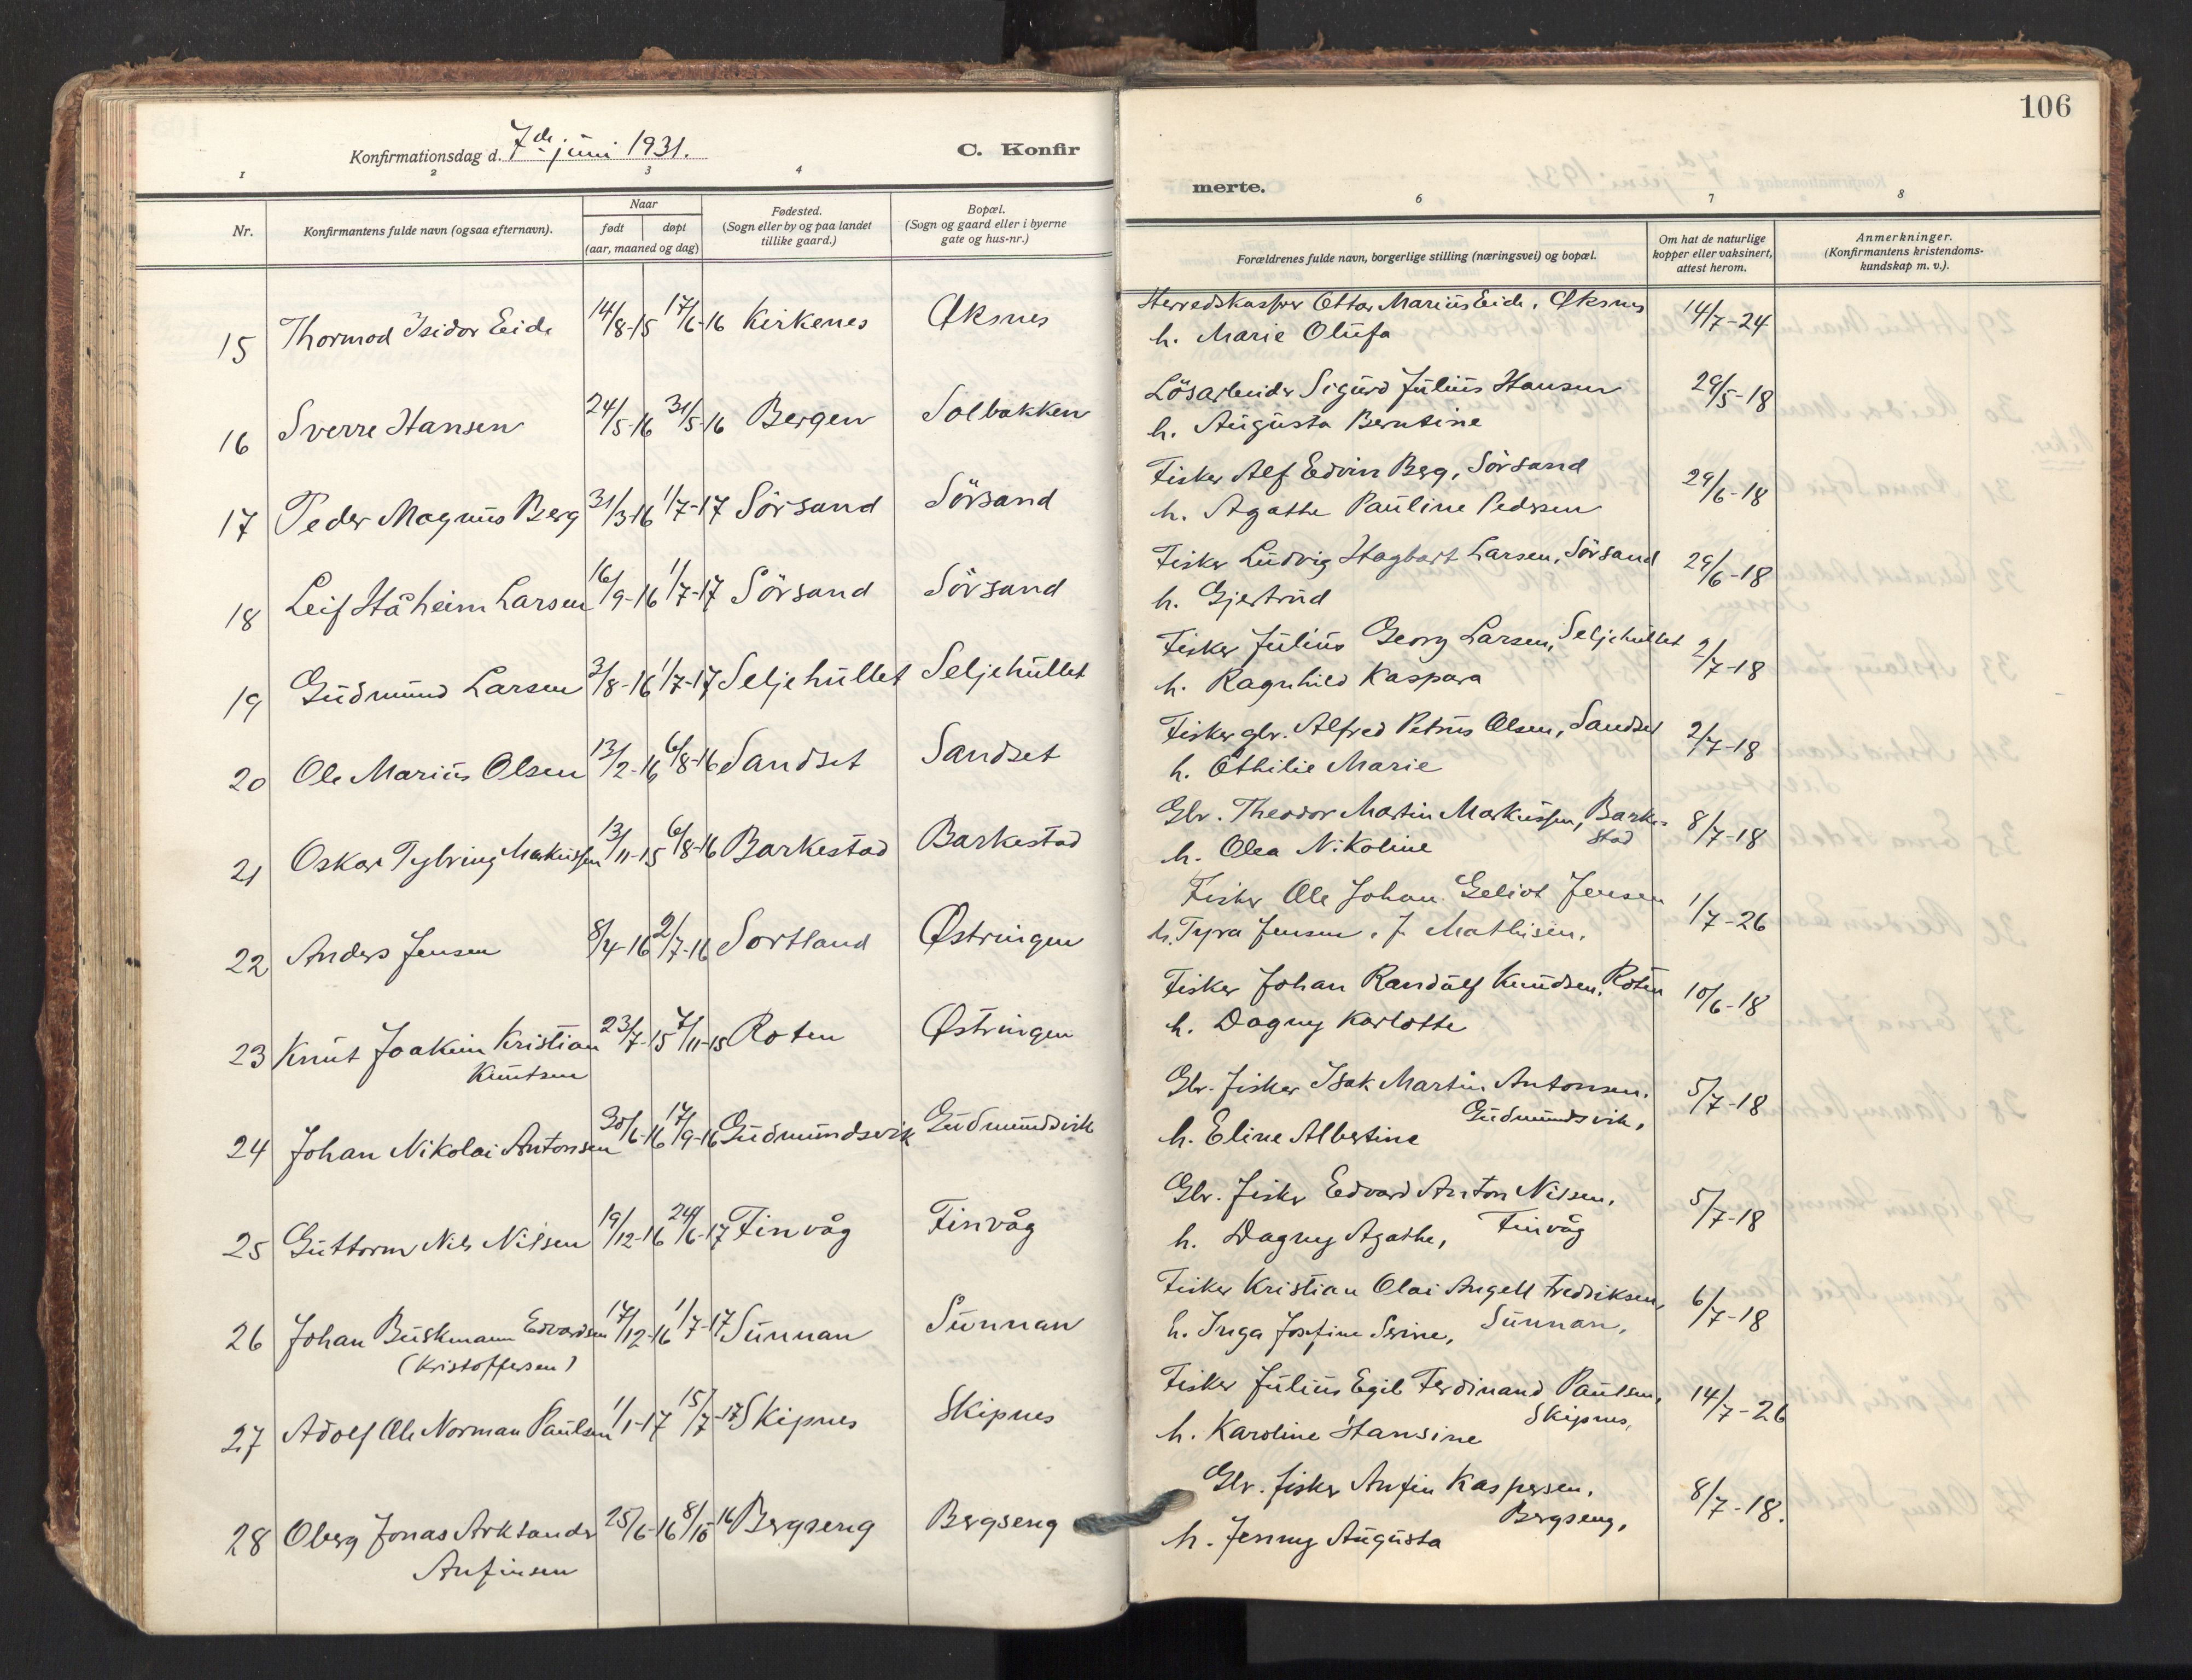 106
Konfirmationsdag d. 7de juni 1931.
C. Konfir
merte.
1
2
3
4
6
7
8
Nr.
Konfirmantens fulde navn (ogsaa efternavn).
Naar
født
døpt
(aar, maaned og dag)
Fødested.
(Sogn eller by og paa landet
tillike gaard.)
Bopæl.
(Sogn og gaard eller i byerne
gate og hus-nr.)
Forældrenes fulde navn, borgerlige stilling (næringsvei) og bopæl.
Om hat de naturlige
kopper eller vaksinert,
attest herom.
Anmerkninger.
(Konfirmantens kristendoms-
kundskap m. v.).
15 Thormod Isidor Eide 14/8-15 17/6-16 Kirkenes Øksnes
Herredskasserer Ottar Marius Eide, Øksnes 14/7-24
h. Marie Olufa
16 Sverre Hansen 24/5-16 31/5-16 Bergen Solbakken
Lösarbeider Sigurd Julius Hansen 29/5-18
h. Augusta Berntine
17 Peder Magnus Berg 31/3-16 1/7-17 Sörsand Sörsand
Fisker Alf Edvin Berg, Sörsand 29/6-18
h. Agathe Pauline Pedersen
18 Leif Håheim Larsen 16/9-16 1/7-17 Sörsand Sörsand
Fisker Ludvig Hagbart Larsen, Sörsand 29/6-18
h. Gjertrud
19 Gudmund Larsen 31/8-16 1/7-17 Seljehullet Seljehullet
Fisker Julius Georg Larsen, Seljehullet 2/7-18
h. Ragnhild Kaspara
20 Ole Marius Olsen 13/2-16 6/8-16 Sandset Sandset
Fisker gbr. Alfred Petrus Olsen, Sandset 2/7-18
h. Othilie Marie
21 Oskar Tybring Markussen 13/11-15 6/8-16 Barkestad Barkestad
Gbr. Theodor Martin Markussen, Barke-
stad 8/7-18
h. Olea Nikoline
22 Anders Jensen 8/4-16 2/7-16 Sortland Østringen
Fisker Ole Johan Geliot Jensen 1/7-26
h. Tyra Jensen, f. Mathisen.
23 Knut Joakim Kristian 23/7-15 7/11-15 Roten Østringen
Knutsen
Fisker Johan Randulf Knudsen, Roten 10/6-18
h. Dagny Karlotte
24 Johan Nikolai Antonsen 30/6-16 17/9-16 Gudmundsvik Gudmundsvik
Gbr. fisker Isak Martin Antonsen. 5/7-18
Gudmundsvik,
h. Eline Albertine
25 Guttorm Nils Nilsen 19/12-16 24/6-17 Finvåg Finvåg
Gbr. fisker Edvard Anton Nilsen. 5/7-18
h. Dagny Agathe, Finvåg
26 Johan Buskmann Edvardsen 17/12-16 1/7-17 Sunnan Sunnan
(Kristoffersen)
Fisker Kristian Olai Angell Fredriksen, 6/7-18
h. Inga Josefine Serine, Sunnan,
27 Adolf Ole Norman Paulsen 1/1-17 15/7-17 Skipnes Skipnes
Fisker Julius Egil Ferdinand Paulsen, 14/7-26
Skipnes,
h. Karoline Hansine
28 Oberg Jonas Arktander 25/6-16 8/10-16 Bergseng Bergseng
Anfinsen
Gbr. fisker Anfin Kaspersen. 8/7-18.
Bergseng,
h. Jenny Augusta